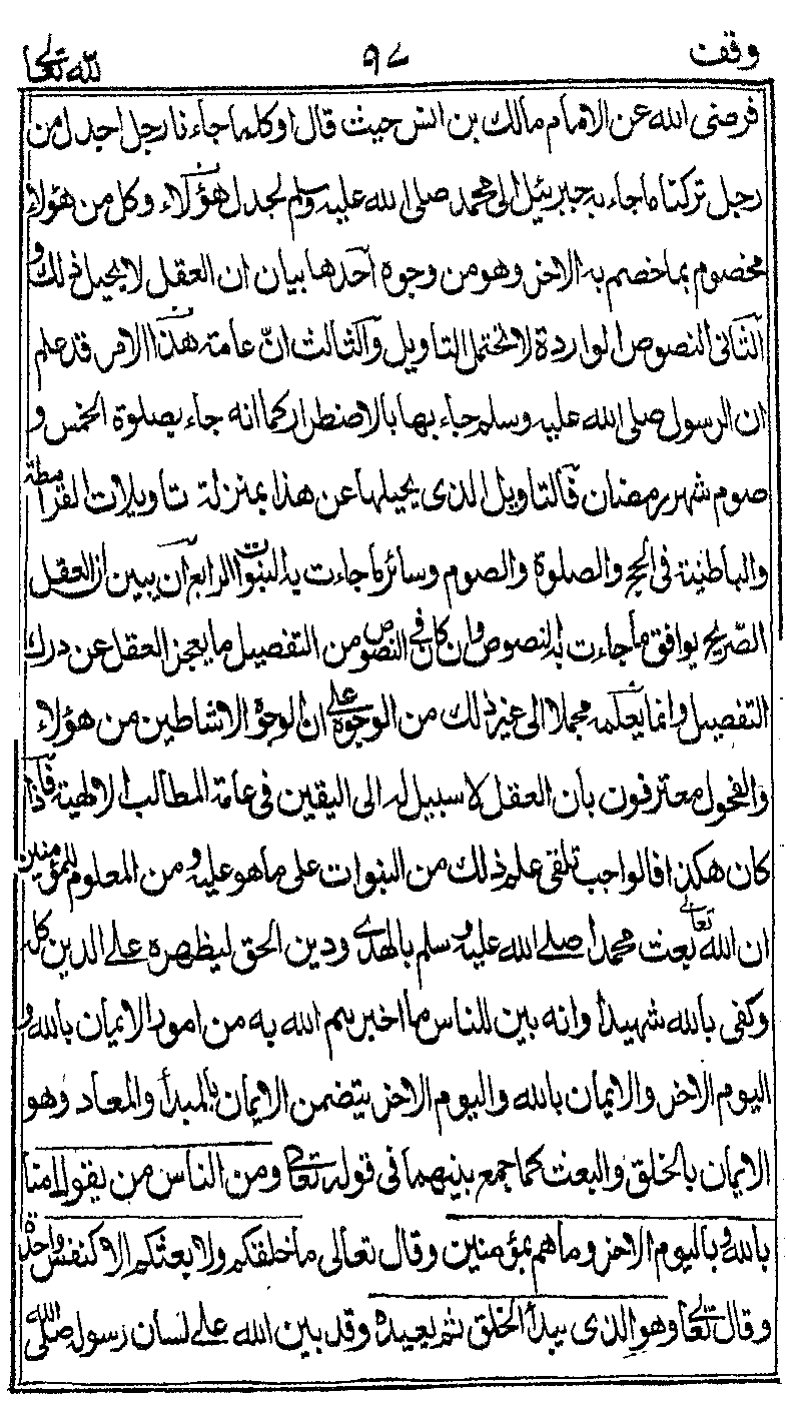 وقف ٩٧ لله تعالى
فرضى الله عن الامام مالك بن انس حيث قال اوكلما جاءنا رجل اجدل من
رجل تركنا ما جاء به جبرئيل الى محمد صلى الله عليه وسلم لجدل هؤلاء وكل من هؤلاء
مخصوم بما خصم به الاخر وهو من وجوه احدها بيان ان العقل لا يحيل ذلك و
الثانى النصوص الواردة لا تحتمل التاويل والثالث انّ عامة هذا الامر قد علم
ان الرسول صلى الله عليه وسلم جاء بها بالاضطرار كما انه جاء بصلوة الخمس و
صوم شهر رمضان فالتاويل الذى يحيلها عن هذا بمنزلة تاويلات القرامطة
والباطنية فى الحج والصلوة والصوم وسائر ما جاءت به النبوات الرابع ان يبين ان العقل
الصّريح يوافق ما جاءت به النصوص وان كان فى النصوص من التفصيل ما يعجز العقل عن درك
التفصيل وانما يعلمه مجملا الى غير ذلك من الوجوه على ان الوجوه الاساطين من هؤلاء
والفحول معترفون بان العقل لا سبيل له الى اليقين فى عامة المطالب الالهية فاذا
كان هكذا فالواجب تلقى علم ذلك من النبوات على ما هو عليه و من المعلوم للمؤمنين
ان الله تعالى بعث محمدا صلى الله عليه و سلم بالهدى ودين الحق ليظهره على الدين كله
وكفى بالله شهيدا وانه بين للناس ما اخبرهم الله به من امور الايمان بالله و
اليوم الاخر والايمان بالله واليوم الاخر يتضمن الايمان بالمبدأ والمعاد وهو
الايمان بالخلق والبعث كما جمع بينهما فى قوله تعالى ومن الناس من يقول امنا
بالله وباليوم الاخر وما هم بمؤمنين وقال تعالى ما خلقكم ولا بعثكم الا كنفس واحدة
وقال تعالى وهو الذى يبدأ الخلق ثم يعيده وقد بين الله على لسان رسوله صلى الله